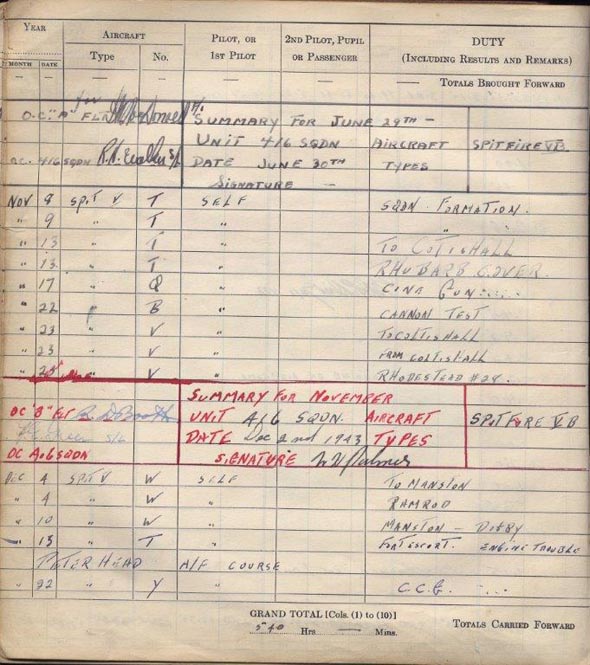 YEAR AIRCRAFT PILOT, OR 1ST PILOT 2ND PILOT, PUPIL OR PASSENGER DUTY (INCLUDING RESULTS AND REMARKS)
MONTH DATE Type No.
— — — — — — — TOTALS BROUGHT FORWARD
for
O.C. "A" FLT SUMMARY FOR JUNE 29TH –
UNIT 416 SQDN AIRCRAFT SPITFIRE VB.
OC. 416 SQDN DATE JUNE 30TH TYPES
SIGNATURE –
NOV 8 SPIT V T SELF SQDN FORMATION.
" 9 " T " "
" 13 " T " TO COLTISHALL
" 13 " T " RHUBARB COVER.
" 17 " Q " CINE GUN
" 22 " B " CANNON TEST
" 23 " V " TO COLTISHALL
" 23 " V " FROM COLTISHALL
" 25 " V " RHODESTEAD #24.
SUMMARY FOR NOVEMBER
OC "B" FLT UNIT 416 SQDN. AIRCRAFT SPITFIRE VB
DATE Dec 2nd 1943 TYPES
OC 416 SQDN SIGNATURE
DEC 4 SPIT V W SELF TO MANSTON
" 4 " W " RAMROD
" 10 " W " MANSTON – DIGBY
" 15 " T " FORT ESCORT. ENGINE TROUBLE
PETERHEAD A/F COURSE
" 22 " Y " C.C.G.
GRAND TOTAL [Cols. (1) to (10)]
540 Hrs — Mins. TOTALS CARRIED FORWARD